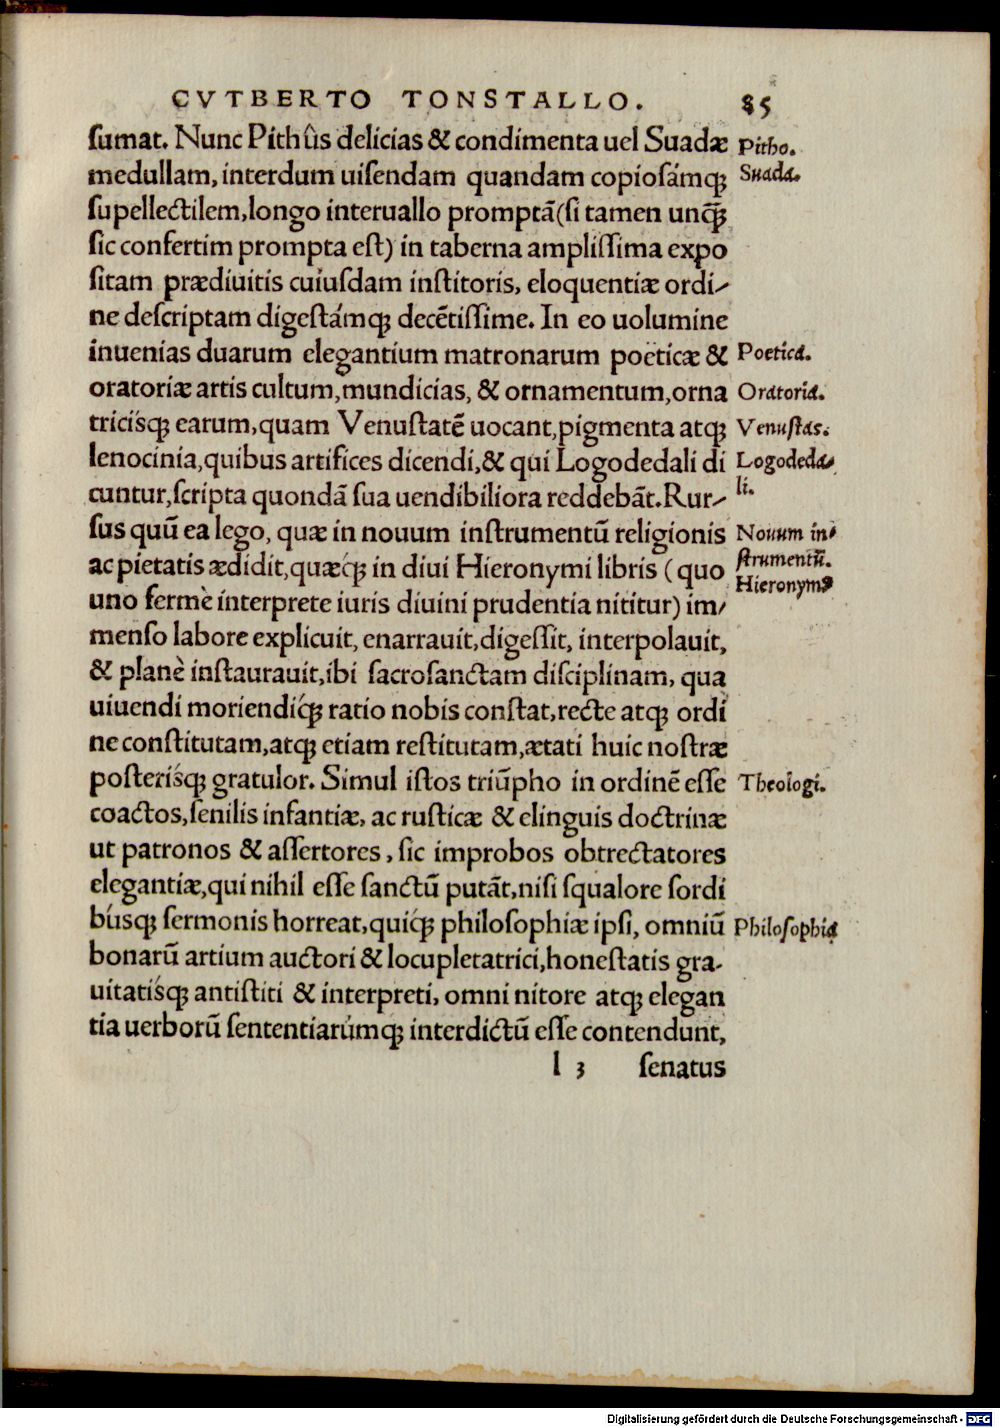 CVTBERTO TONSTALLO. 85
sumat. Nunc Pithûs delicias & condimenta uel Suadæ
medullam, interdum uisendam quandam copiosámq́ꝫ
supellectilem,longo interuallo promptã(si tamen unq̃ꝫ
sic confertim prompta est) in taberna amplissima expo
sitam prædiuitis cuiusdam institoris, eloquentiæ ordi-
ne descriptam digestámqꝫ decẽtissime. In eo uolumine
inuenias duarum elegantium matronarum poëticæ &
oratoriæ artis cultum,mundicias, & ornamentum,orna
tricisqꝫ earum,quam Venustatẽ uocant,pigmenta atqꝫ
lenocinia,quibus artifices dicendi,& qui Logodedali di
cuntur,scripta quondã sua uendibiliora reddebãt.Rur-
sus quũ ea lego, quæ in nouum instrumentũ religionis
ac pietatis ædidit,quæq́ꝫ in diui Hieronymi libris (quo
uno fermè interprete iuris diuini prudentia nititur) im-
menso labore explicuit, enarrauit,digessit, interpolauit,
& planè instaurauit,ibi sacrosanctam disciplinam, qua
uiuendi moriendiq́ꝫ ratio nobis constat,recte atqꝫ ordi
ne constitutam,atqꝫ etiam restitutam,ætati huic nostræ
posterísqꝫ gratulor. Simul istos triũpho in ordinẽ esse
coactos,senilis infantiæ, ac rusticæ & elinguis doctrinæ
ut patronos & assertores, sic improbos obtrectatores
elegantiæ,qui nihil esse sanctũ putãt,nisi squalore sordi
búsqꝫ sermonis horreat,quiq́ꝫ philosophiæ ipsi, omniũ
bonarũ artium auctori & locupletatrici,honestatis gra-
uitatísqꝫ antistiti & interpreti, omni nitore atqꝫ elegan
tia uerborũ sententiarúmqꝫ interdictũ esse contendunt,
l 3 senatus
Pitho.
Suada.
Poetica.
Oratoria.
Venustas.
Logodeda-
li.
Nouum in-
strumentũ.
Hieronymꝰ
Theologi.
Philosophia
Digitalisierung gefördert durch die Deutsche Forschungsgemeinschaft - DFG